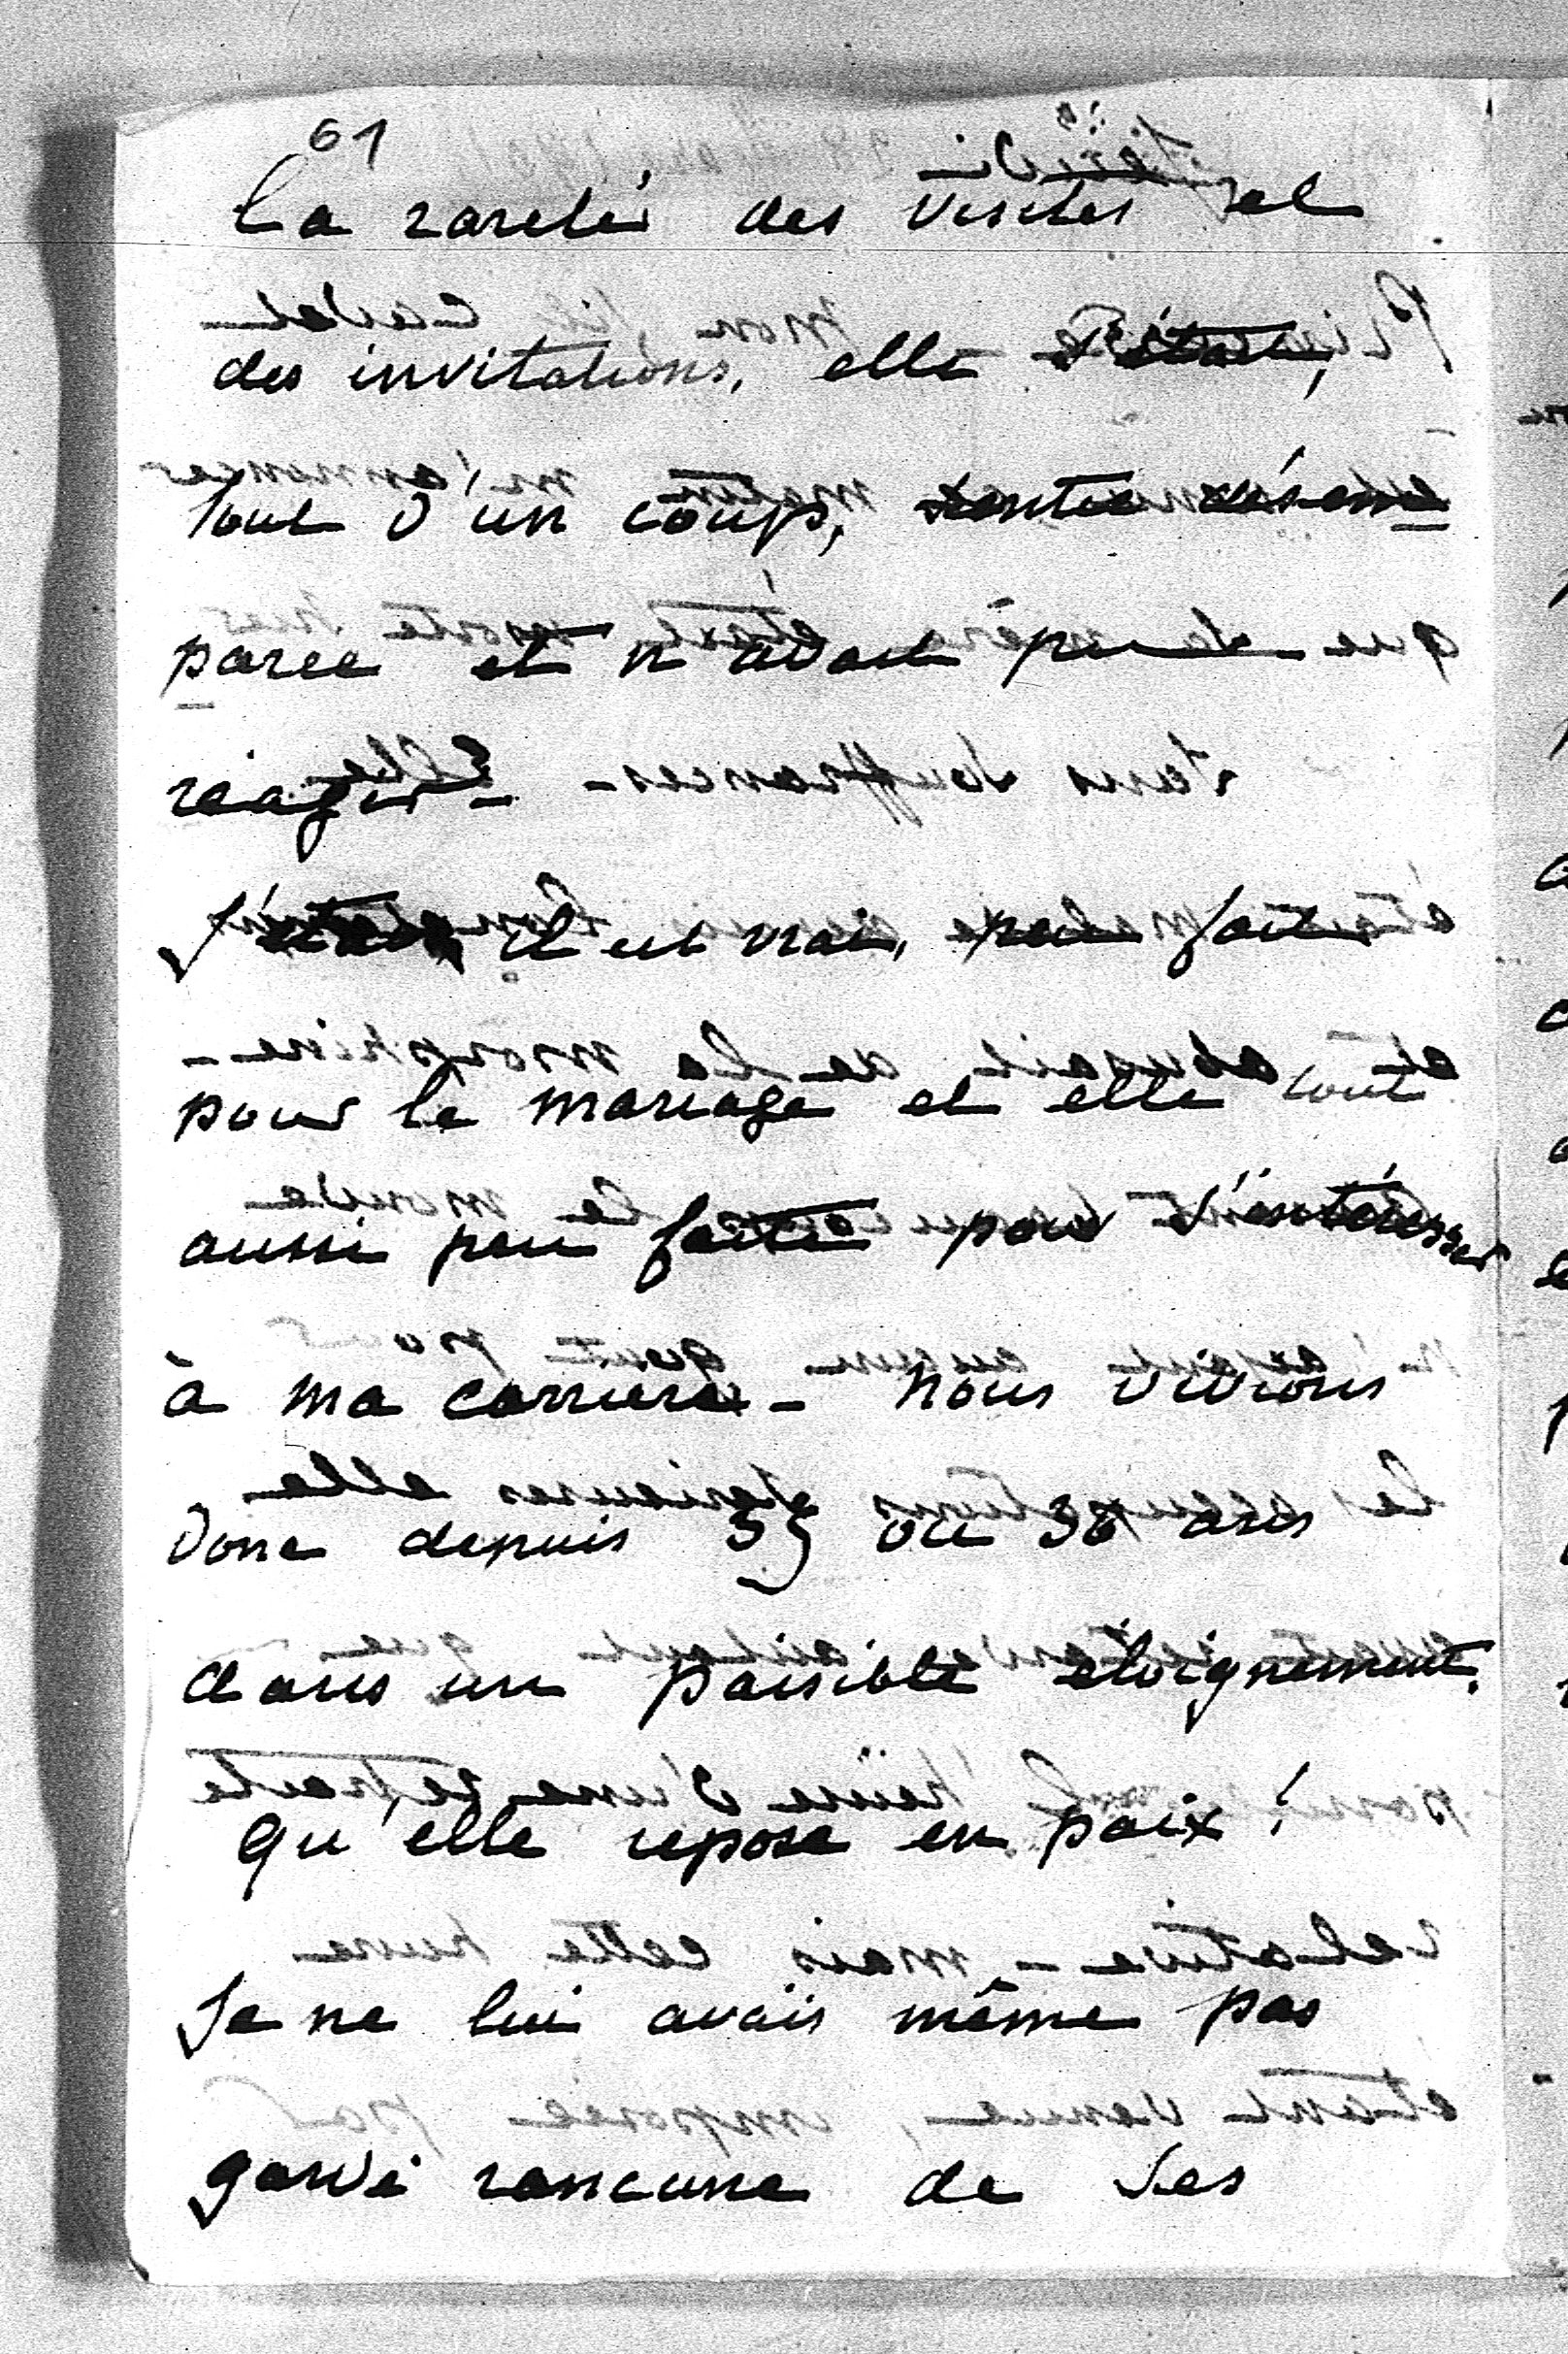 61
la rareté des visites et
des invitations, elle s'était,
tout d'un coup, sentie désem
parée et n'avait pu
réagir -
J'étais, il est vrai, peu fait
pour le mariage et elle tout
aussi peu faite pour s'intéresser
à ma carrière - Nous vivions
donc depuis 35 ou 36 ans
dans un paisible éloignement.
Qu'elle repose en paix !
Je ne lui avais même pas
gardé rancune de ses